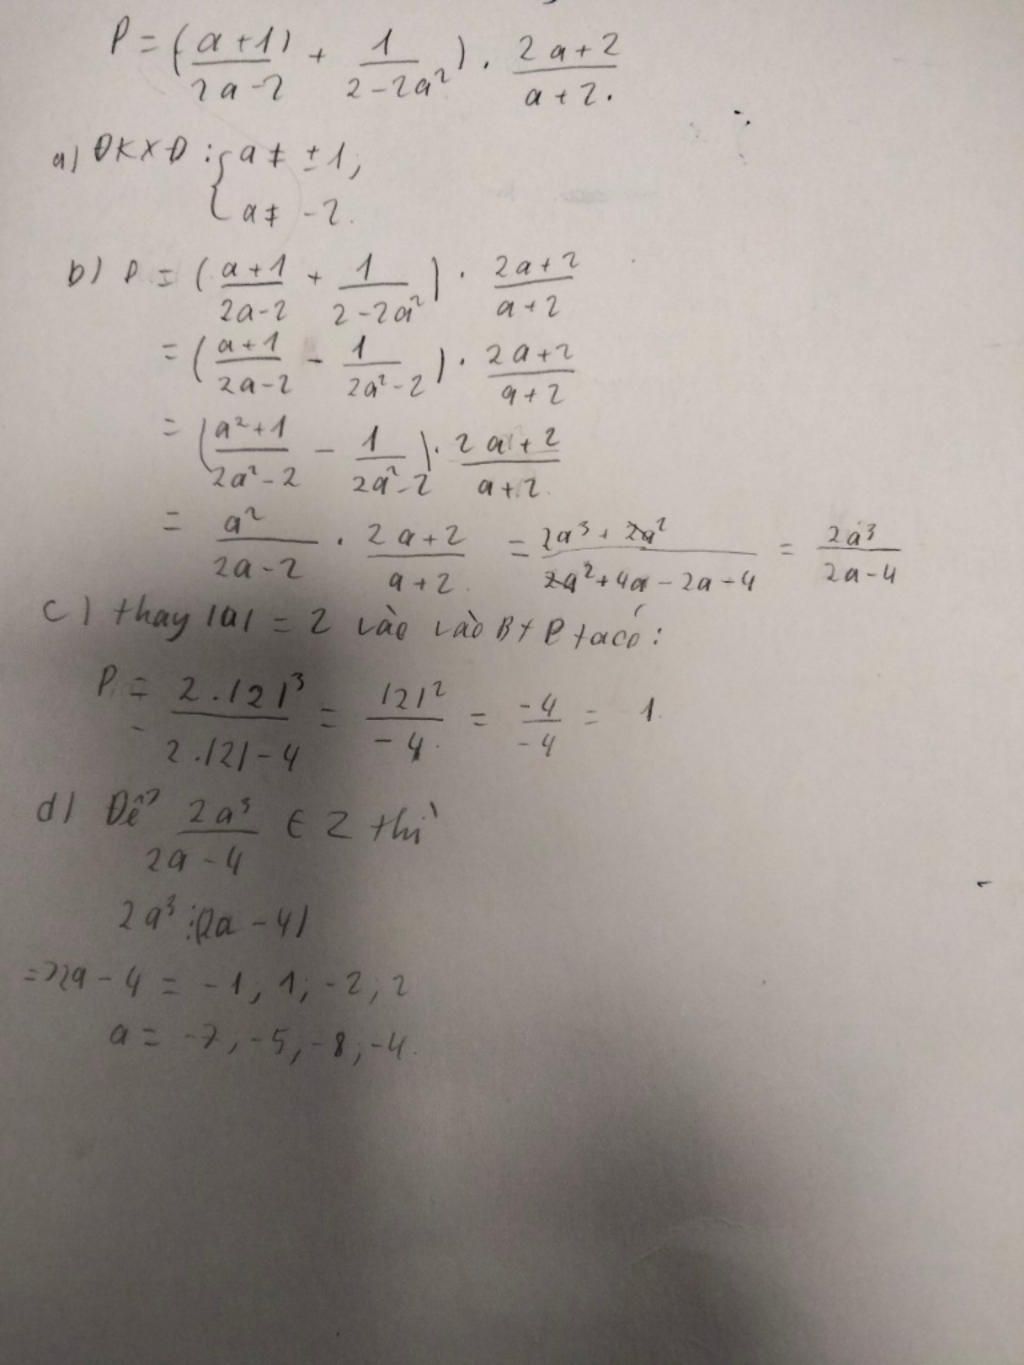 P = (\frac{(a+1)}{2a-2} + \frac{1}{2-2a²}) . \frac{2a+2}{a+2}.
a) ĐKXĐ : { a ≠ ±1,
a ≠ -2.
b) P = (\frac{a+1}{2a-2} + \frac{1}{2-2a²}) . \frac{2a+2}{a+2}
= (\frac{a+1}{2a-2} - \frac{1}{2a²-2}) . \frac{2a+2}{a+2}
= (\frac{a²+1}{2a²-2} - \frac{1}{2a²-2}) . \frac{2a+2}{a+2}.
= \frac{a²}{2a-2} . \frac{2a+2}{a+2}. = \frac{2a³+2a²}{2a²+4a-2a-4} = \frac{2a³}{2a-4}
c) thay |a| = 2 vào vào BT P ta có :
P = \frac{2.|2|³}{2.|2|-4} = \frac{|2|²}{-4} = \frac{-4}{-4} = 1.
d) Để \frac{2a³}{2a-4} ∈ Z thì
2a³ ⋮ (2a-4)
=> 2a-4 = -1, 1, -2, 2
a = -7, -5, -8, -4.